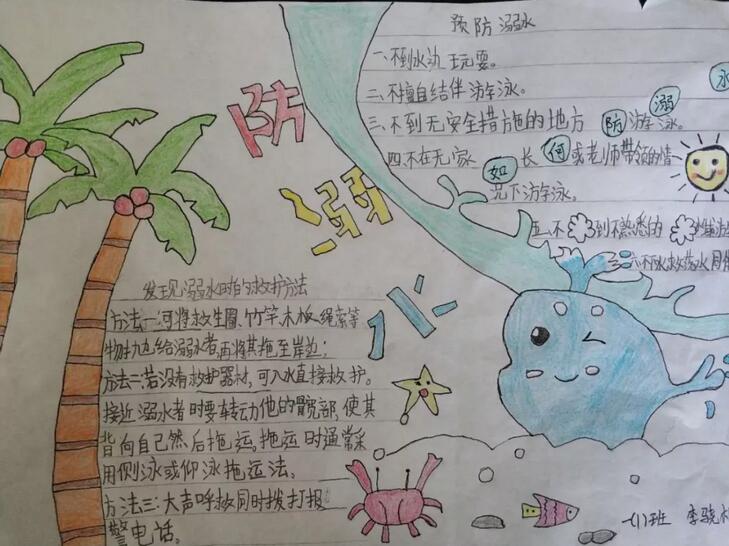 预防溺水
一、不到水边玩耍。
二、不擅自结伴游泳。
三、不到无安全措施的地方游泳。
四、不在无家长或老师带领的情
况下游泳。
五、不到不熟悉的
六、不下水救落水同
如何防溺水
防溺水
发现溺水时的救护方法
方法一:可将救生圈、竹竿、木板、绳索等
物抛给溺水者,再将其拖至岸边;
方法二:若没有救护器材,可入水直接救护。
接近溺水者时要转动他的髋部,使其
背向自己然后拖运。拖运时通常采
用侧泳或仰泳拖运法。
方法三:大声呼救同时拨打报
警电话。
一(1)班 李骁